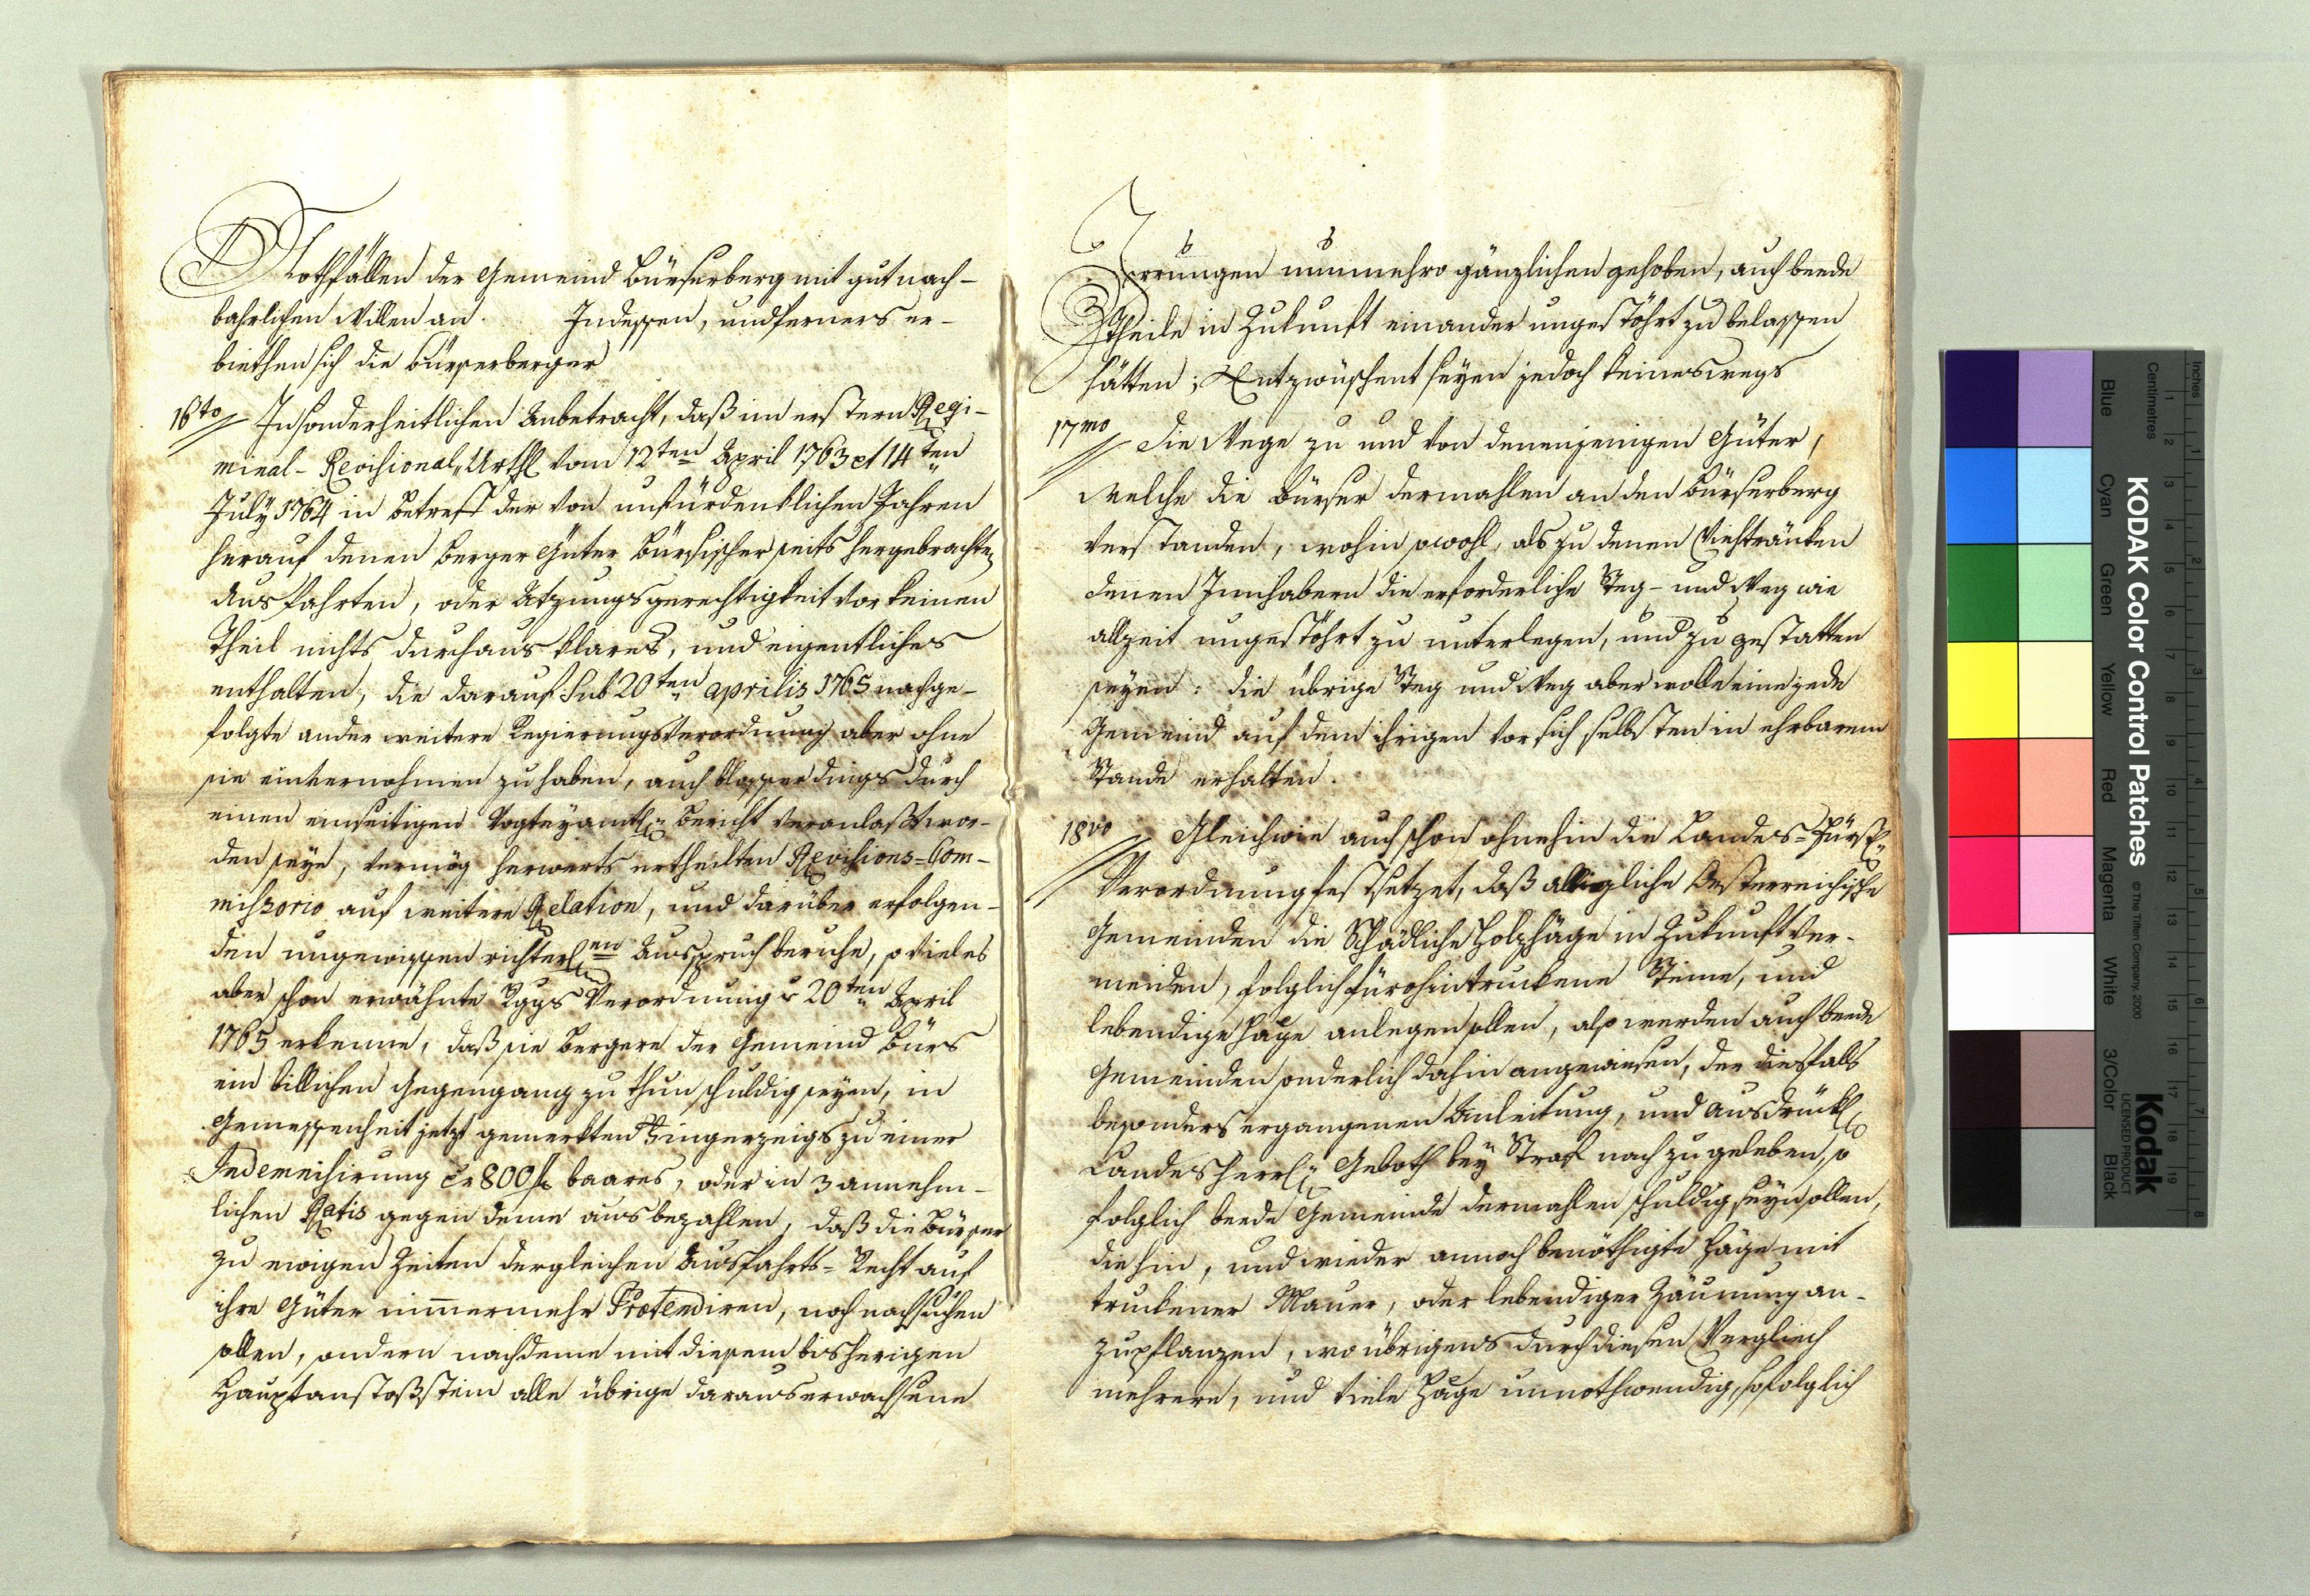 Nothfällen der Gemeind Bürserberg mit gut nach-
bahrlichen Willen an. Indessen, und ferners er-
biethen sich die Bürserberger
16to Insonderheitlichen Anbetracht, daß im erstern Regi-
minal-Revisional-Urthl vom 12ten April 1763 et 14ten
July 1764 in Betreff der von unfürdenklichen Jahren
herauf denen Berger Güter Bürsischer seits hergebrachten
Ausfahrten, oder Atzungsgerechtigkeit vor keinen
Theil nichts durchaus klares, und eigentliches
enthalten, die darauf sub 20ten aprilis 1765 nachge-
folgte ander weitere Regierungsverordnung aber ohne
sie einvernohmen zu haben, auch blosser dings durch
einen einseitigen Vogteyamtl: Bericht veranlaßt wor-
den seye, vermög herwerts ertheilten Revisions-Com-
missorio auf weitere Relation, und darüber erfolgen-
den ungewissen richterlen Ausspruch beruhe, so vieles
aber schon erwähnte Rggs Verordnung 20ten April
1765 erkenne, daß sie Bergere der Gemeind Bürs
ein billichen Gegengang zu thun schuldig seyen, in
Gemessenheit jetzt gemerkten Fingerzeigs zu einer
Indemnisirung 800 fl baares, oder in 3 annehm-
lichen Ratis gegen deme ausbezahlen, daß die Bürser
zu ewigen Zeiten dergleichen Ausfahrts-Recht auf
ihre Güter nimmermehr Prætendiren, noch nachsuchen
sollen, sondern nachdeme mit diesem bisherigen
Hauptanstoßstein alle übrige daraus erwachsene
Irrungen nunmehro gänzlichen gehoben, auch beede
Theile in Zukunft einander ungestöhrt zu belassen
hätten; Entzwüschent seyen jedoch keineswegs
17mo die Wege zu und von denenjenigen Güter,
welche die Bürser dermahlen an den Bürserberg
verstanden, wohin sowohl, als zu denen Viehtränken
denen Innhabern die erforderliche Steg- und Weg wie
allzeit ungestöhrt zu unterlegen, und zu gestatten
seyen: die übrige Steg und Weg aber wolle eine jede
Gemeind auf dem ihrigen vor sich selbsten in ehrbarem
Stande erhalten.
18vo Gleichwie auch schon ohnehin die Landes-Fürstl:
Verordnung festsetzet, daß alligliche Oesterreichische
Gemeinden die schädliche Holzhäge in Zukunft ver-
meiden, folglich fürohin truckene Steine, und
lebendige Häge anlegen sollen, also werden auch beede
Gemeinden sonderlich dahin angewiesen, der diesfals
besonders ergangenen Anleitung, und ausdrückl:
Landesherrl: Geboth bey Straf nach zu geleben, so
folglich beede Gemeinde dermahlen schuldig seyn sollen,
die hin, und wieder annoch benöthigte Häge mit
truckener Mauer, oder lebendiger Zäunung an-
zupflanzen, wo übrigens durch diesen Vergliech
mehrere, und viele Häge unnothwendig, so folglich
KODAK Color Control Patches
© The Tiffen Company, 2000
Kodak
LICENSED PRODUCT
Inches
Centimetres
Blue Cyan Green Yellow Red Magenta White 3/Color Black